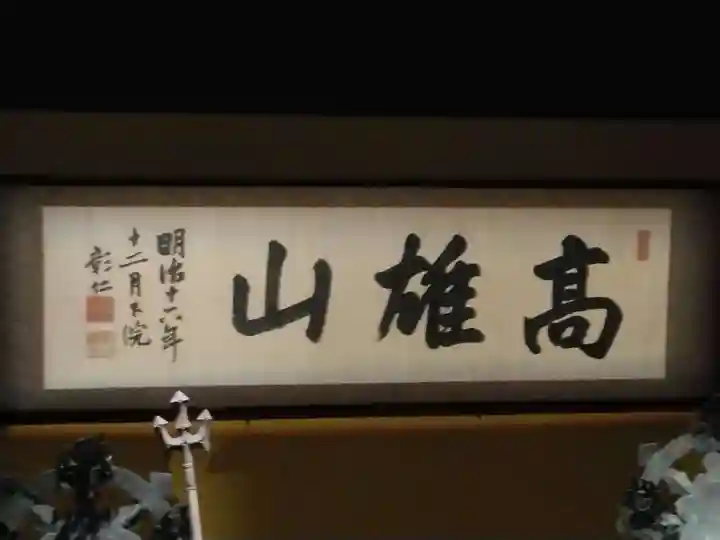 高雄山
明治十六年
十二月下浣
彰仁